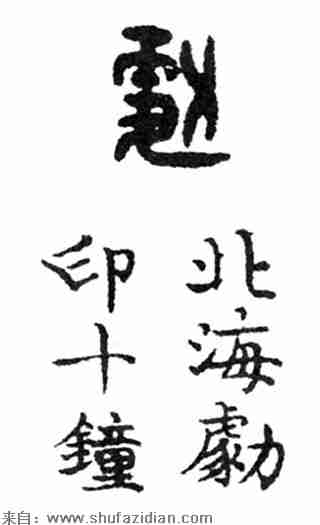 勮
北海勮
印十鐘
来自：www.shufazidian.com